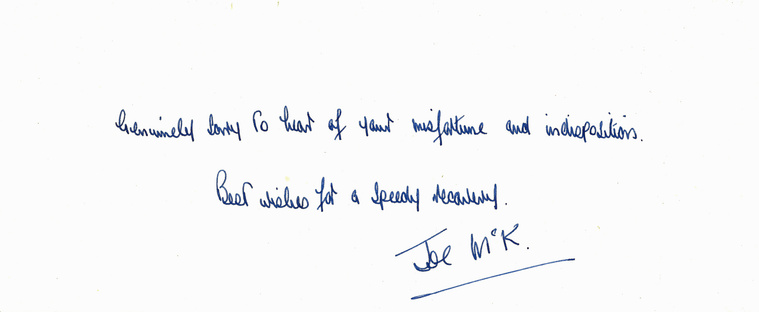 Genuinely sorry to hear of your misfortune and indisposition.
Best wishes for a speedy recovery.
Joe McK.